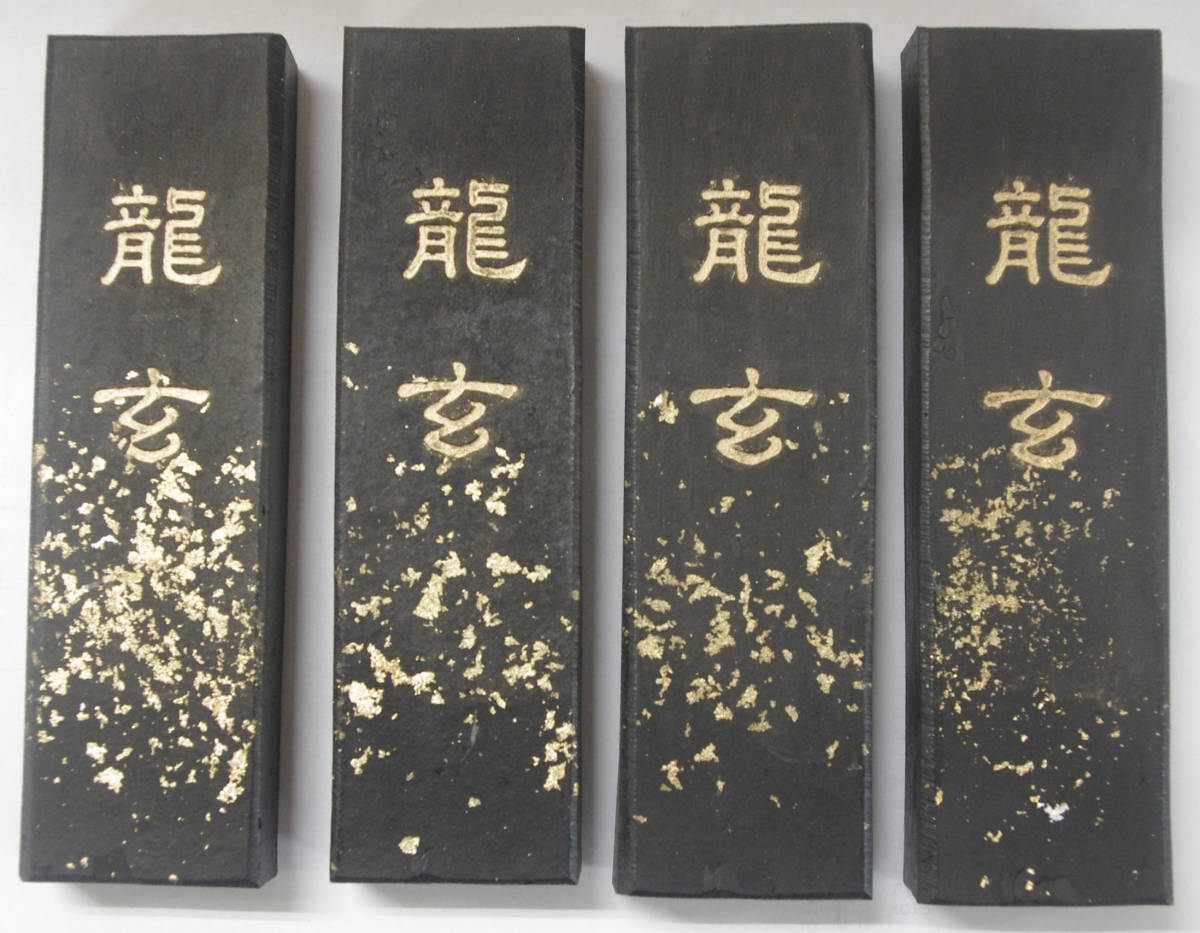 龍玄
龍玄
龍玄
龍玄